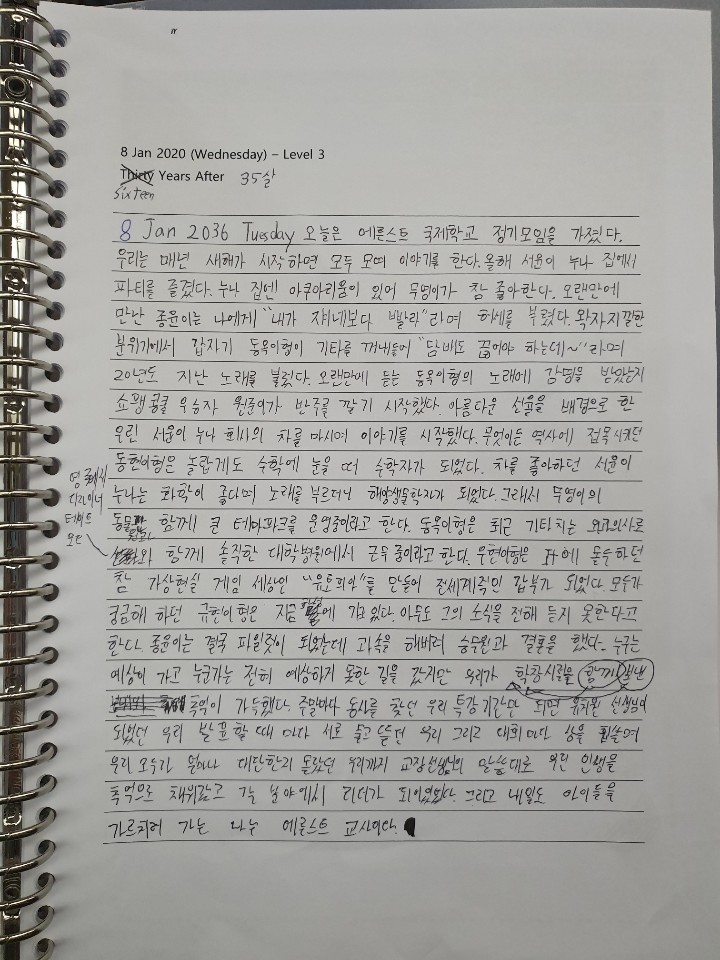 8 Jan 2020 (Wednesday) – Level 3
Thirty Years After 35살
Sixteen
8 Jan 2036 Tuesday 오늘은 에른스트 국제학교 정기모임을 가졌다.
우리는 매년 새해가 시작하면 모두 모여 이야기를 한다. 올해 서윤이 누나 집에서
파티를 즐겼다. 누나 집엔 아쿠아리움이 있어 무영이가 참 좋아한다. 오랜만에
만난 종윤이는 나에게 "내가 쟤네보다 빨라"라며 허세를 부렸다. 왁자지껄한
분위기에서 갑자기 동욱이형이 기타를 꺼내들어 "담배도 끊어야 하는데~"라며
20년도 지난 노래를 불렀다. 오랜만에 듣는 동욱이형의 노래에 감명을 받았는지
쇼팽콩쿨 우승자 원준이가 반주를 깔기 시작했다. 아름다운 선율을 배경으로 한
우린 서윤이 누나 회사의 차를 마시며 이야기를 시작했다. 무엇이든 역사에 접목시키던
동현이형은 놀랍게도 수학에 눈을 떠 수학자가 되었다. 차를 좋아하던 서윤이
누나는 화학이 좋다며 노래를 부르더니 해양생물학자가 되었다. 그래서 무영이의
동물과 함께 큰 테마파크를 운영중이라고 한다. 동욱이형은 퇴근 기타치는 외과의사로
함께 솔직한 대학병원에서 근무중이라고 한다. 우현이형은 IT에 몰두하던
참 가상현실 게임 세상인 "유토피아"를 만들어 전세계적인 갑부가 되었다. 모두가
궁금해 하던 규현이형은 지금 에 가있다. 아무도 그의 소식을 전해 듣지 못한다고
한다. 종윤이는 결국 파일럿이 되었는데 과속을 해버려 승무원과 결혼을 했다. 누구는
예상이 가고 누군가는 전혀 예상하지 못한 길을 갔지만 우리가 학창시절을 함께 보낸
추억이 가득했다. 주말마다 동사를 찾던 우리 특강기간만 되면 유치원 선생님이
되었던 우리 발표할 때 마다 서로 물고 뜯던 우리 그리고 대회마다 상을 휩쓸며
우리 모두가 얼마나 대단한지 몰랐던 우리까지 교장선생님의 말씀대로 우린 인생을
추억으로 채워갔고 그 분야에서 리더가 되어있었다. 그리고 내일도 아이들을
가르치러 가는 나는 에른스트 교사이다.